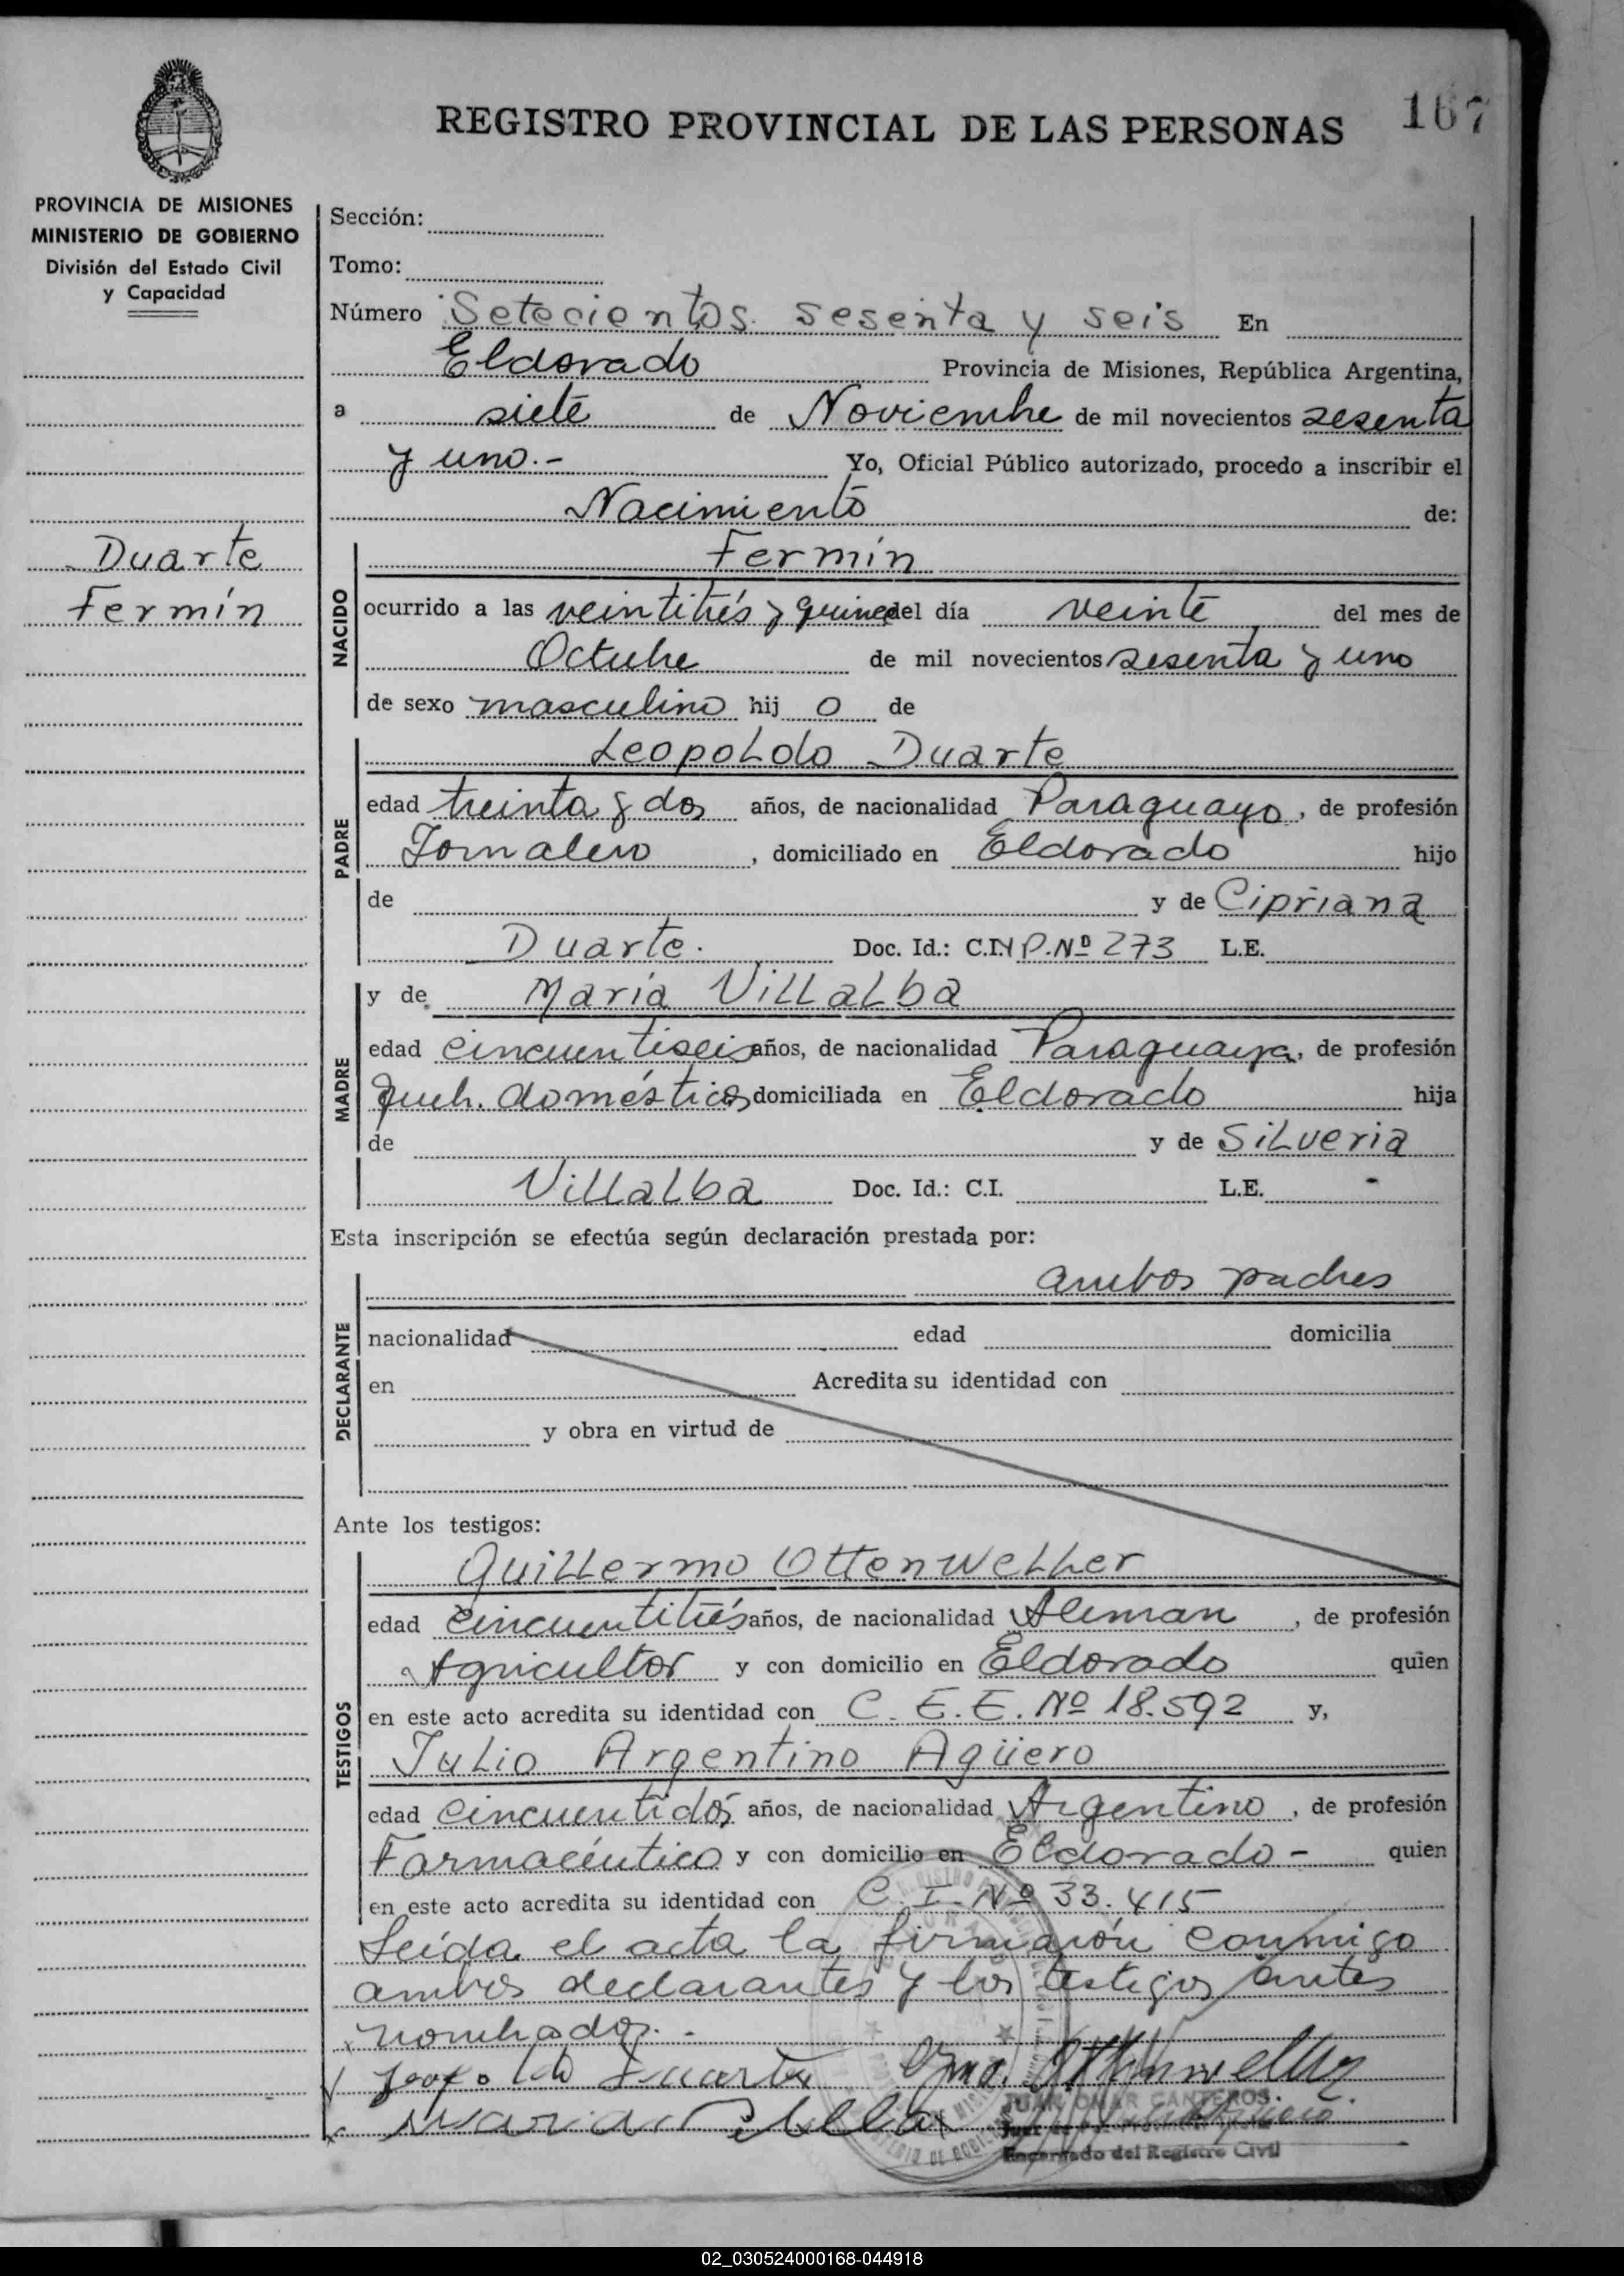 167
REGISTRO PROVINCIAL DE LAS PERSONAS
PROVINCIA DE MISIONES
MINISTERIO DE GOBIERNO
División del Estado Civil
y Capacidad
Duarte
Fermín
Sección:
Tomo:
Número Setecientos sesenta y seis En
Eldorado Provincia de Misiones, República Argentina,
a siete de Noviembre de mil novecientos sesenta
y uno.- Yo, Oficial Público autorizado, procedo a inscribir el
Nacimiento de:
NACIDO
Fermín
ocurrido a las veintitrés y quince del día veinte del mes de
Octubre de mil novecientos sesenta y uno
de sexo masculino hij o de
PADRE
Leopoldo Duarte
edad treinta y dos años, de nacionalidad Paraguayo, de profesión
Jornalero, domiciliado en Eldorado hijo
de y de Cipriana
Duarte. Doc. Id.: C.I. P.Nº 273 L.E.
MADRE
y de María Villalba
edad cincuentiseis años, de nacionalidad Paraguaya, de profesión
queh. domésticos domiciliada en Eldorado hija
de y de Silveria
Villalba Doc. Id.: C.I. L.E. -
Esta inscripción se efectúa según declaración prestada por:
ambos padres
DECLARANTE
nacionalidad edad domicilia
en Acredita su identidad con
y obra en virtud de
Ante los testigos:
TESTIGOS
Guillermo Ottenweller
edad cincuentitrés años, de nacionalidad Alemán, de profesión
Agricultor y con domicilio en Eldorado quien
en este acto acredita su identidad con C. E. E. Nº 18.592 y,
Julio Argentino Agüero
edad cincuentidós años, de nacionalidad Argentino, de profesión
Farmacéutico y con domicilio en Eldorado - quien
en este acto acredita su identidad con C. I. Nº 33.415
Leída el acta la firmaron conmigo
ambos declarantes y los testigos antes
nombrados.-
Leopoldo Duarte Gmo. Ottenweller
JUAN OMAR CANTEROS.
Maria
Encargado del Registro Civil
02_030524000168-044918